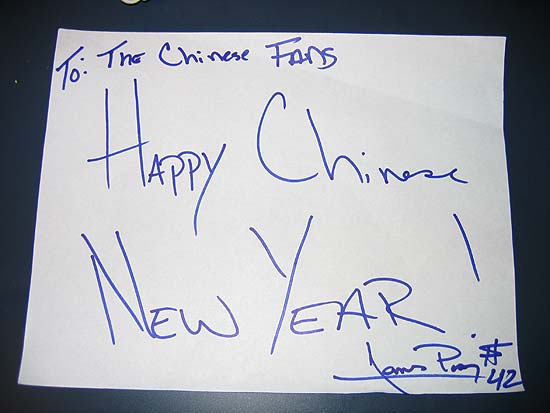 To: The Chinese Fans
Happy Chinese
New Year!
#
42